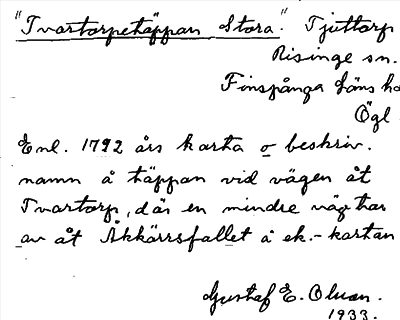 "Tvartorpetäppan Stora". Tjuttorp
Risinge sn.
Finspånga läns h
Ögl
Enl. 1792 års karta o beskriv.
namn å täppan vid vägen åt
Tvartorp, där en mindre väg tar
av åt Åkkärrsfallet å ek.-kartan
Gustaf E. Olsson.
1933.